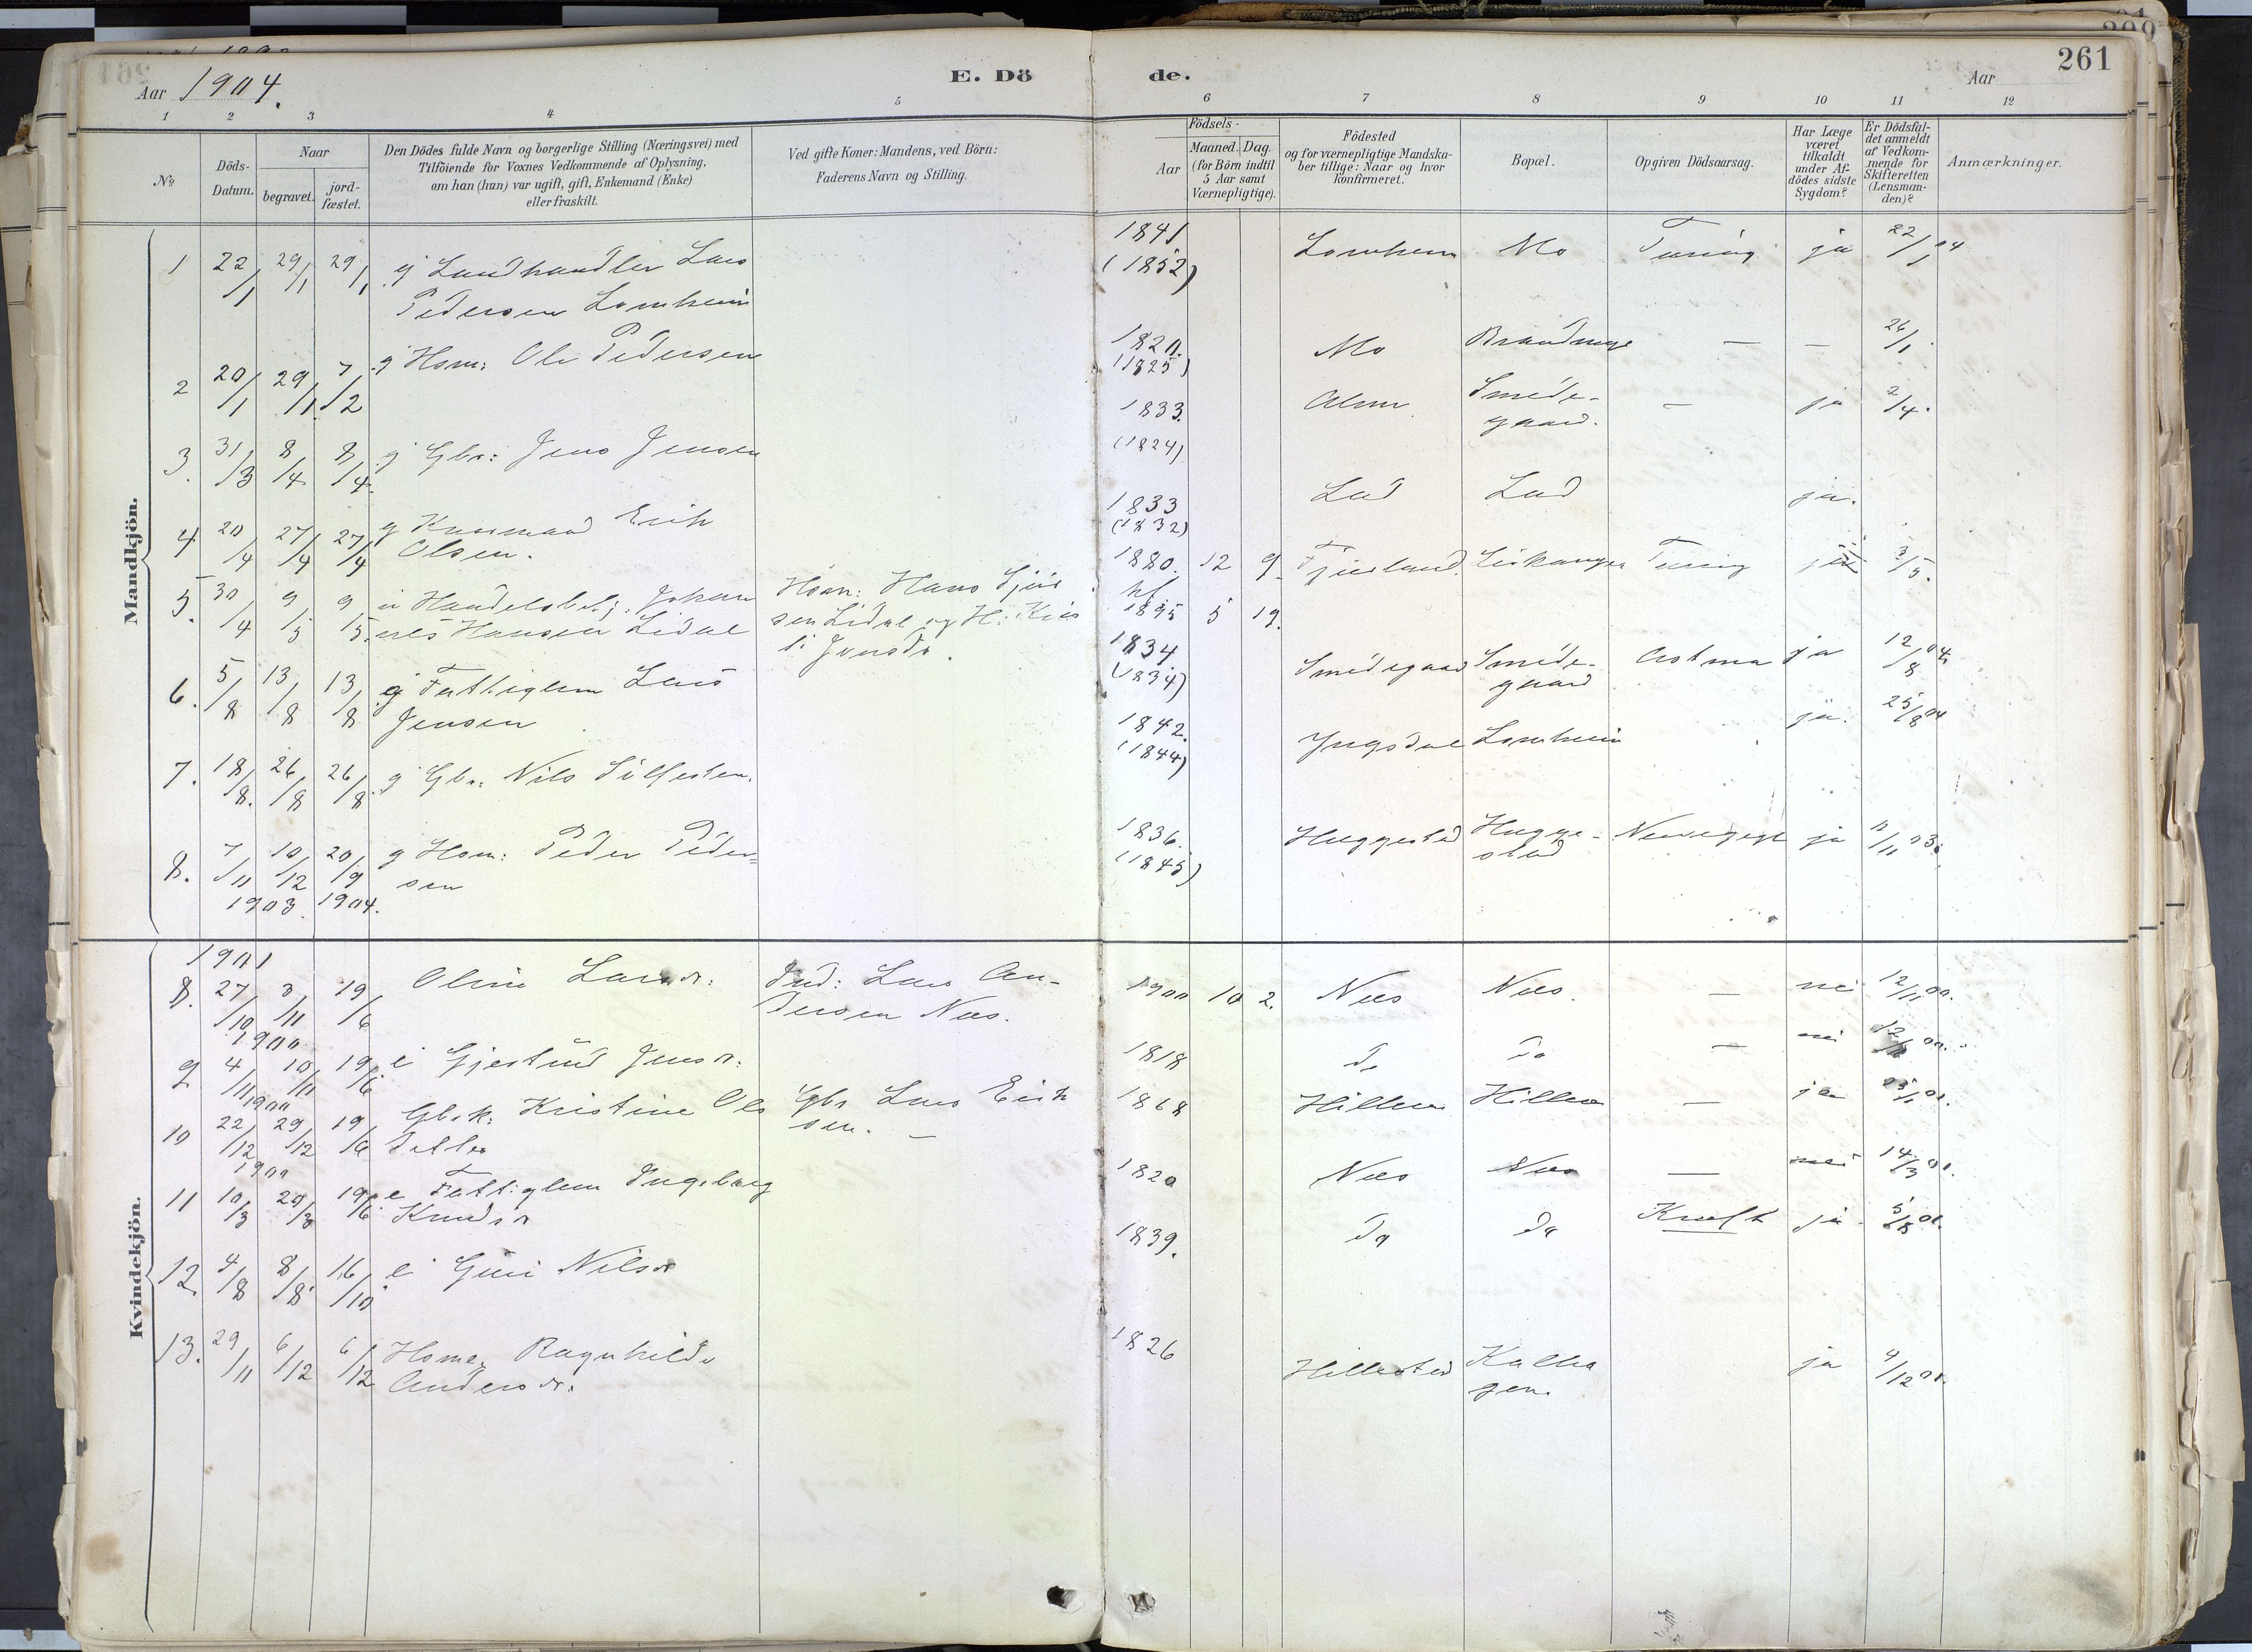 261
Aar 1904.
E. Dö de.
Aar
1 2 3 4 5 6 7 8 9 10 11 12
No
Döds-
Datum.
Naar
begravet.
jord-
fæstet.
Den Dödes fulde Navn og borgerlige Stilling (Næringsvei) med
Tilföiende for Voxnes Vedkommende af Oplysning,
om han (hun) var ugift, gift, Enkemand (Enke)
eller fraskilt.
Ved gifte Koner: Mandens, ved Börn:
Faderens Navn og Stilling.
Födsels-
Aar
Maaned. Dag.
(for Börn indtil
5 Aar samt
Værnepligtige).
Födested
og for værnepligtige Mandska-
ber tillige: Naar og hvor
konfirmeret.
Bopæl.
Opgiven Dödsaarsag.
Har Læge
været
tilkaldt
under Af-
dödes sidste
Sygdom?
Er Dödsfal-
det anmeldt
af Vedkom-
mende for
Skifteretten
(Lensman-
den)?
Anmærkninger.
Mandkjön.
1 22/1 29/1 29/1 g Landhandler Lars 1841 Lomheim Mo Tæring ja 22/1 04
Pedersen Lomheim (1852)
2 20/1 29/1 7/2 g Hsm: Ole Pedersen 1820. Mo — — 26/1
(1825)
3. 31/3 8/4 8/4. g Gbr: Jens Jensen 1833. Smede- — ja 2/4.
gaard.
(1824)
4 20/4 27/4 27/4 g Erik 1833 Lad Lad ja.
Olsen. (1832)
5. 30/4 9/5 9/5. u Handelsbetj. Johan 1880. 12 9. Fjærland. Leikanger Tæring ja 3/5.
nes Hansen Lidal Hsm: Hans
sen Lidal og H: 1895 5 19.
6. 5/8 13/8 13/8 g Fattiglem Lars 1834 Smedegaard Smede- Astma ja 12/8 04.
Jensen (1834) gaard
7. 18/8. 26/8 26/8 g Gbr: Nils Sülfesten. 1842. Yngsdal Lomheim ja. 25/8 04
(1844)
8. 7/11 10/12 20/9 g Hsm: Peder Peder= 1836. Huggestad Hugge- ja 11/11 03.
1903. 1904. sen (1845) stad
Kvindekjön.
1901
8. 27/10 3/11 19/6 Oline Larsdr: Ind: Lars An- 1900 10 2. Nes Nes. — nei 12/11 00.
1900 dersen Nes.
9 4/11 10/11 19/6 e Gjertrud Jensdr: 1818 do do — nei 12/11 00.
1900
10 22/12 29/12 19/6 Gbrk: Kristine Ols Gbr Lars Erik 1868 — ja 01.
1900 datter sen. —
11 10/3 20/3 19/6 e Fattiglem Ingeborg 1820 Nes Nes — nei 14/3 01.
Knudsdr
12. 4/8 8/8 16/10 e Guri Nilsdr 1839. do do Kræft ja 5/8 01.
13. 29/11 6/12 6/12 Ragnhilde 1826 Hillestad ja 4/12 01.
Andersdr.